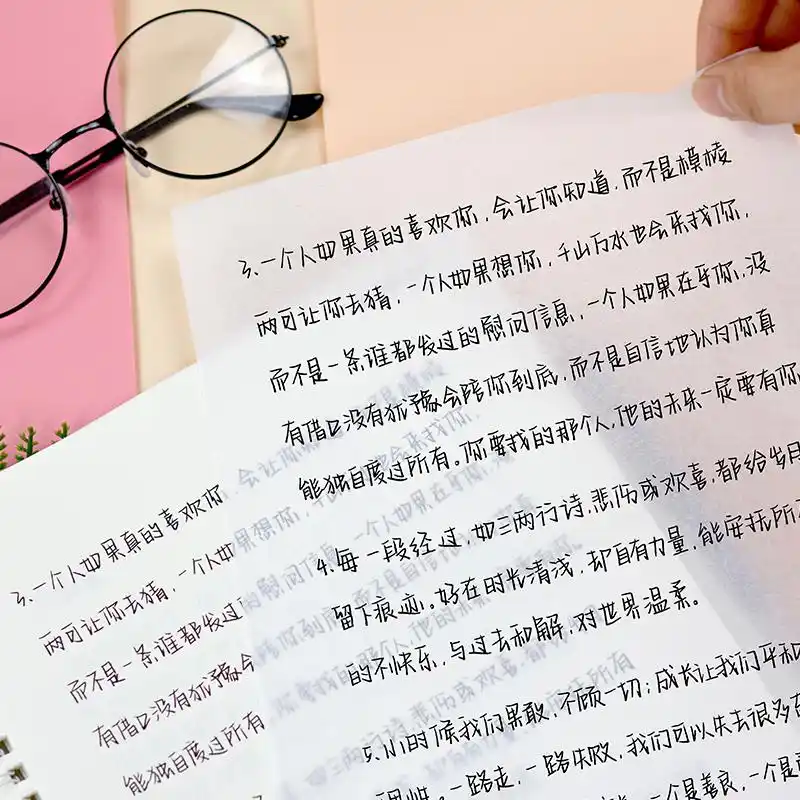 3.一个人如果真的喜欢你,会让你知道,而不是模棱
两可让你去猜,一个人如果想你,千山万水也会来找你,
而不是一条谁都发过的慰问信息,一个人如果在乎你,没
有借口没有犹豫会陪你到底,而不是自信地认为你真
能独自度过所有。你要找的那个人,他的未来一定要有你
4.每一段经过,如三两行诗,悲伤或欢喜,都给岁月
留下痕迹。好在时光清浅,却自有力量,能安抚所
的不快乐,与过去和解,对世界温柔。
5.小时候我们果敢,不顾一切;成长让我们平和
一路走,一路失败,我们可以失去很多
一个是善良,一个是
3.一个人如果真的喜欢你,会让你
两可让你去猜,一个人如果想你,
而不是一条谁都发过的慰问信息,一个人如果在乎你,没
有借口没有犹豫会
能独自度过所有